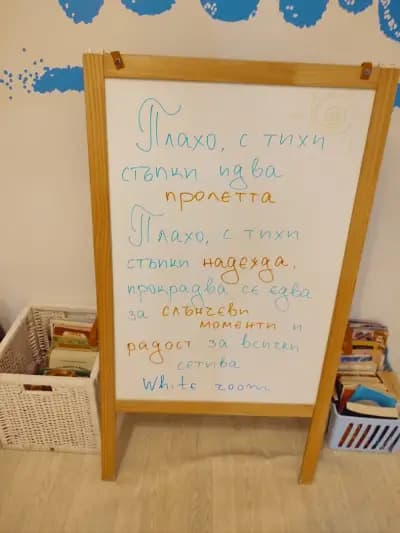 Плахо, с тихи
стъпки идва
пролетта
Плахо, с тихи
стъпки надежда,
прокрадва се едва
за слънчеви
моменти и
радост за всички
сетива
White room